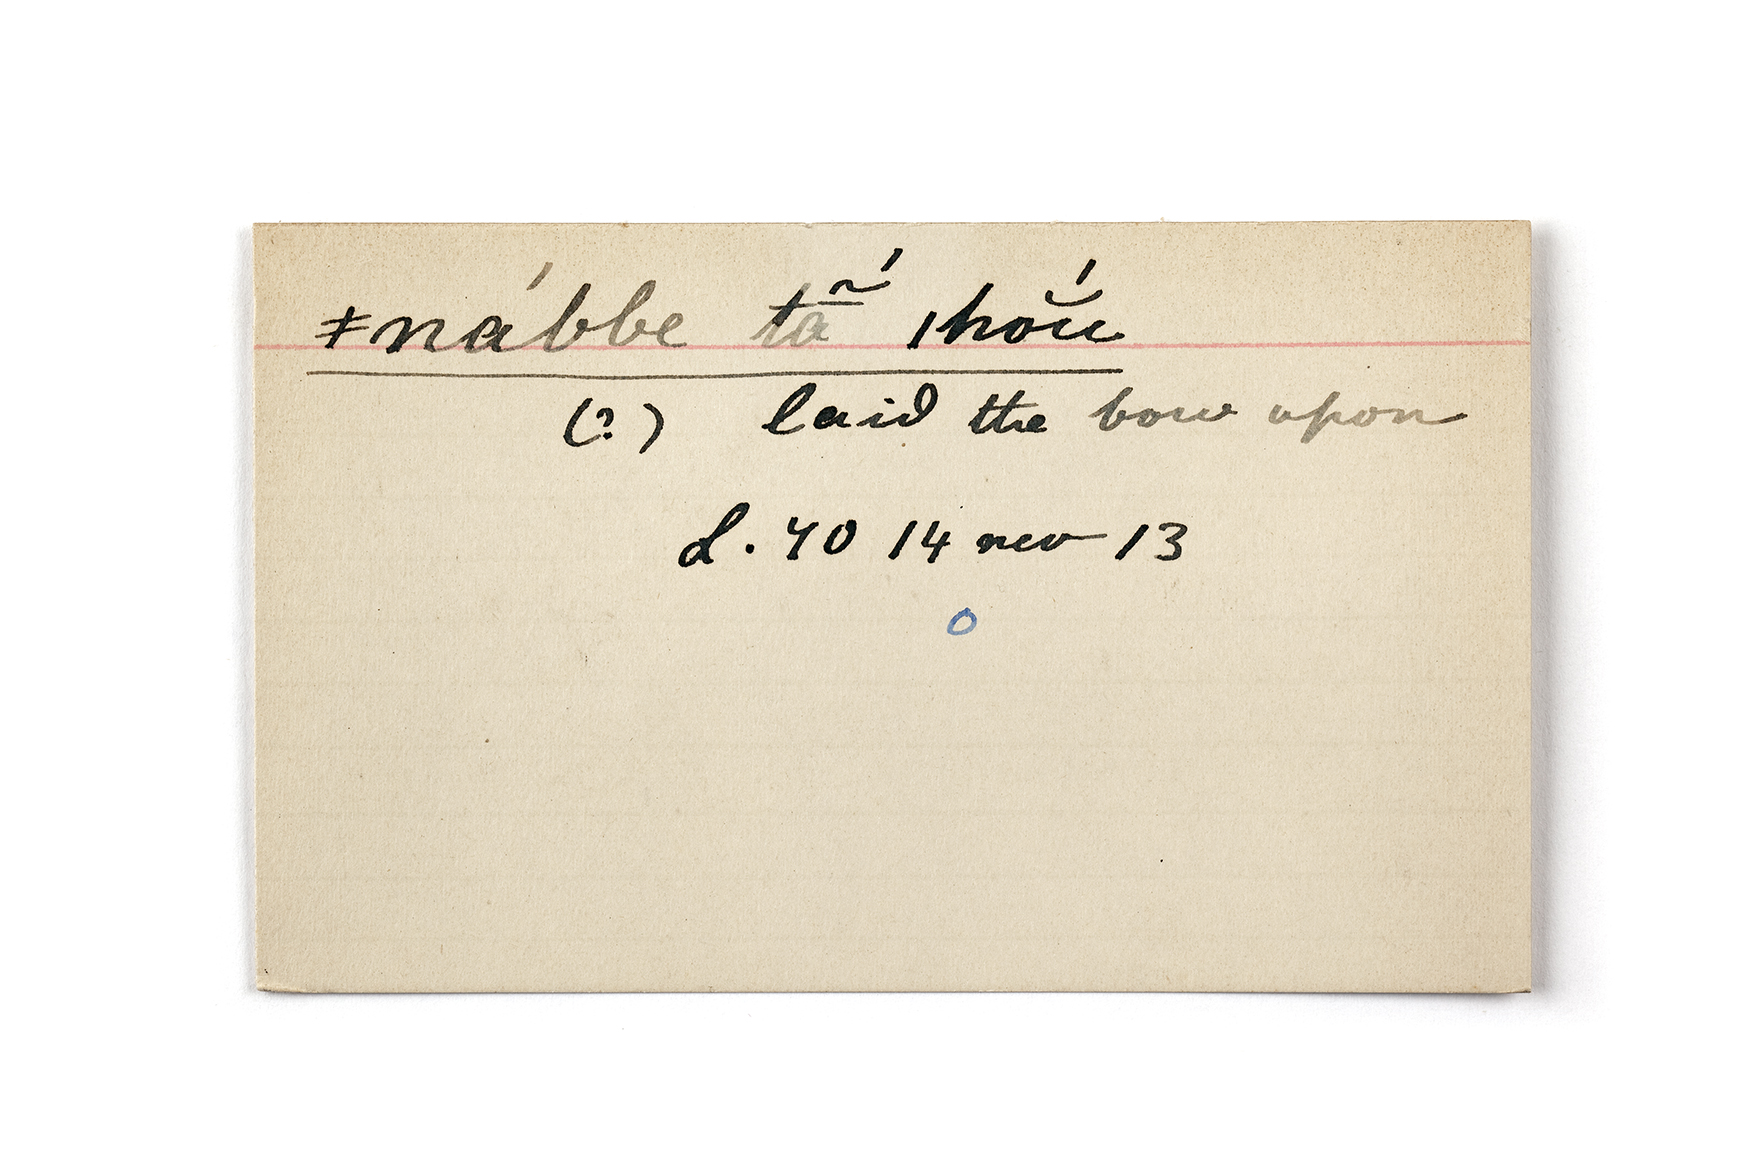 ǂnábbe tã́ ǀhóŭ
(?) laid the bow upon
L. 40 14 nov 13
o